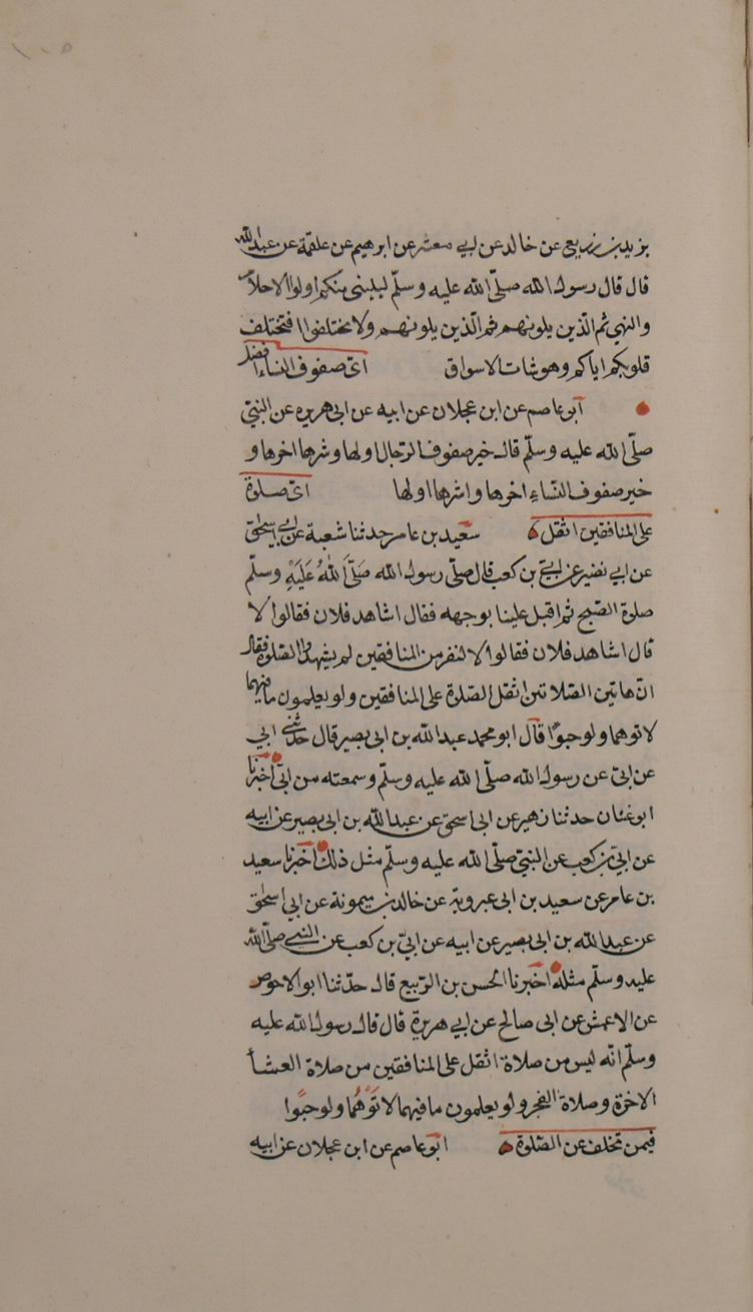 يزيد بن زريع عن خالد عن ابي معشر عن ابرهيم عن علقمة عن عبد الله
قال قال رسول الله صلّى الله عليه وسلّم ليلينى منكم اولوا الاحلام
والنهي ثم الّذين يلونهم ثم الّذين يلونهم ولا تختلفوا فتختلف
قلوبكم اياكم وهوشات الاسواق اىّ صفوف النساء افضل
ابو عاصم عن ابن عجلان عن ابيه عن ابى هريره عن النبىّ
صلّى الله عليه وسلّم قال خير صفوف الرّجال اولها وشرها اخرها و
خير صفوف النّساء اخرها واشرها اولها اىّ صلوة
على المنافقين اثقل سعيد بن عامر حدثنا شعبة عن ابى اسحٰق
عن ابي نضير عن ابيّ بن كعب قال صلّى رسول الله صَلّىَ اللهُ عَلَيْهِ وسلّم
صلوة الصّبح ثم اقبل علينا بوجهه فقال اشاهد فلان فقالوا لا
قال اشاهد فلان فقالوا لا لنفر من المنافقين لم يشهدوا الصّلوة فقال
انّ هاتين الصّلاتين اثقل الصّلوة على المنافقين ولو يعلمون ما فيهما
لاتوهما ولو حبوًا قال ابو محمد عبد الله بن ابى بصير قال حدّثنى ابي
عن ابىّ عن رسول الله صلّى الله عليه وسلّم وسمعته من ابىّ اخبرنا
ابو غسان حدثنا زهير عن ابى اسحق عن عبد الله بن ابى بصير عن ابيه
عن ابىّ بن كعب عن النبىّ صلّى الله عليه وسلّم مثل ذلك اخبرنا سعيد
بن عامر عن سعيد بن ابى عروبة عن خالد بن ميمونة عن ابي اسحٰق
عن عبد الله بن ابى بصير عن ابيه عن ابىّ بن كعب عن النبيّ صلّى الله
عليه وسلّم مثله اخبرنا الحسن بن الرّبيع قال حدّثنا ابو الاحوص
عن الاعمش عن ابى صالح عن ابي هريرة قال قال رسول الله عليه
وسلّم انّه ليس من صلاة اثقل على المنافقين من صلاة العشاء
الاخرة وصلاة الفجر ولو يعلمون ما فيهما لاتَوْهُما ولو حبوًا
فيمن تخلف عن الصّلوة ابو عاصم عن ابن عجلان عن ابيه